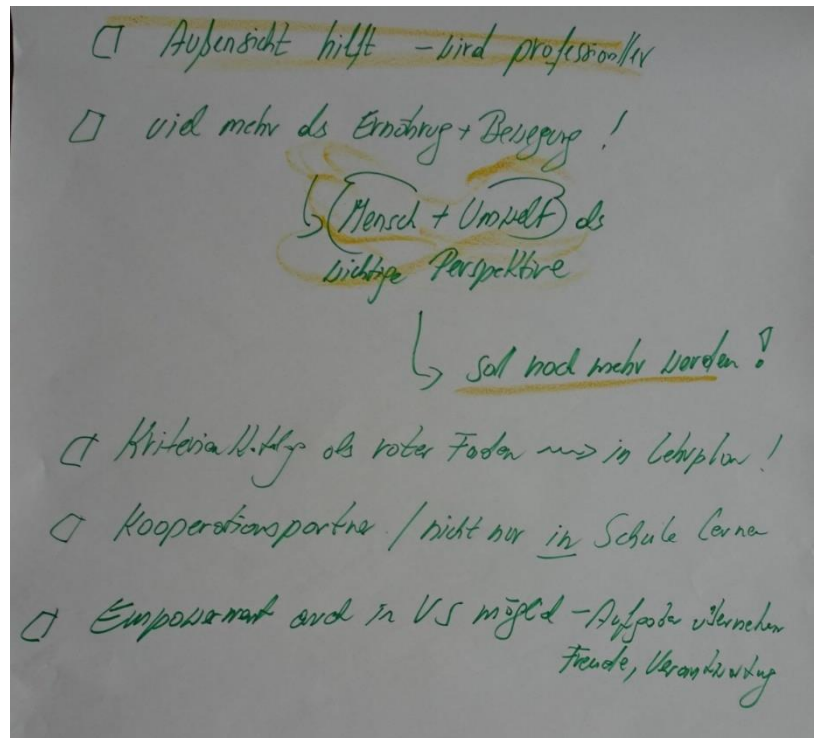 Außensicht hilft – wird professioneller
viel mehr als Ernährung + Bewegung!
↳ (Mensch + Umwelt) als
wichtige Perspektive
↳ soll noch mehr werden!
Kriterienkatalog als roter Faden ⇝ in Lehrplan!
Kooperationspartner / nicht nur in Schule lernen
Empowerment auch in VS möglich – Aufgaben übernehmen
Freude, Verantwortung